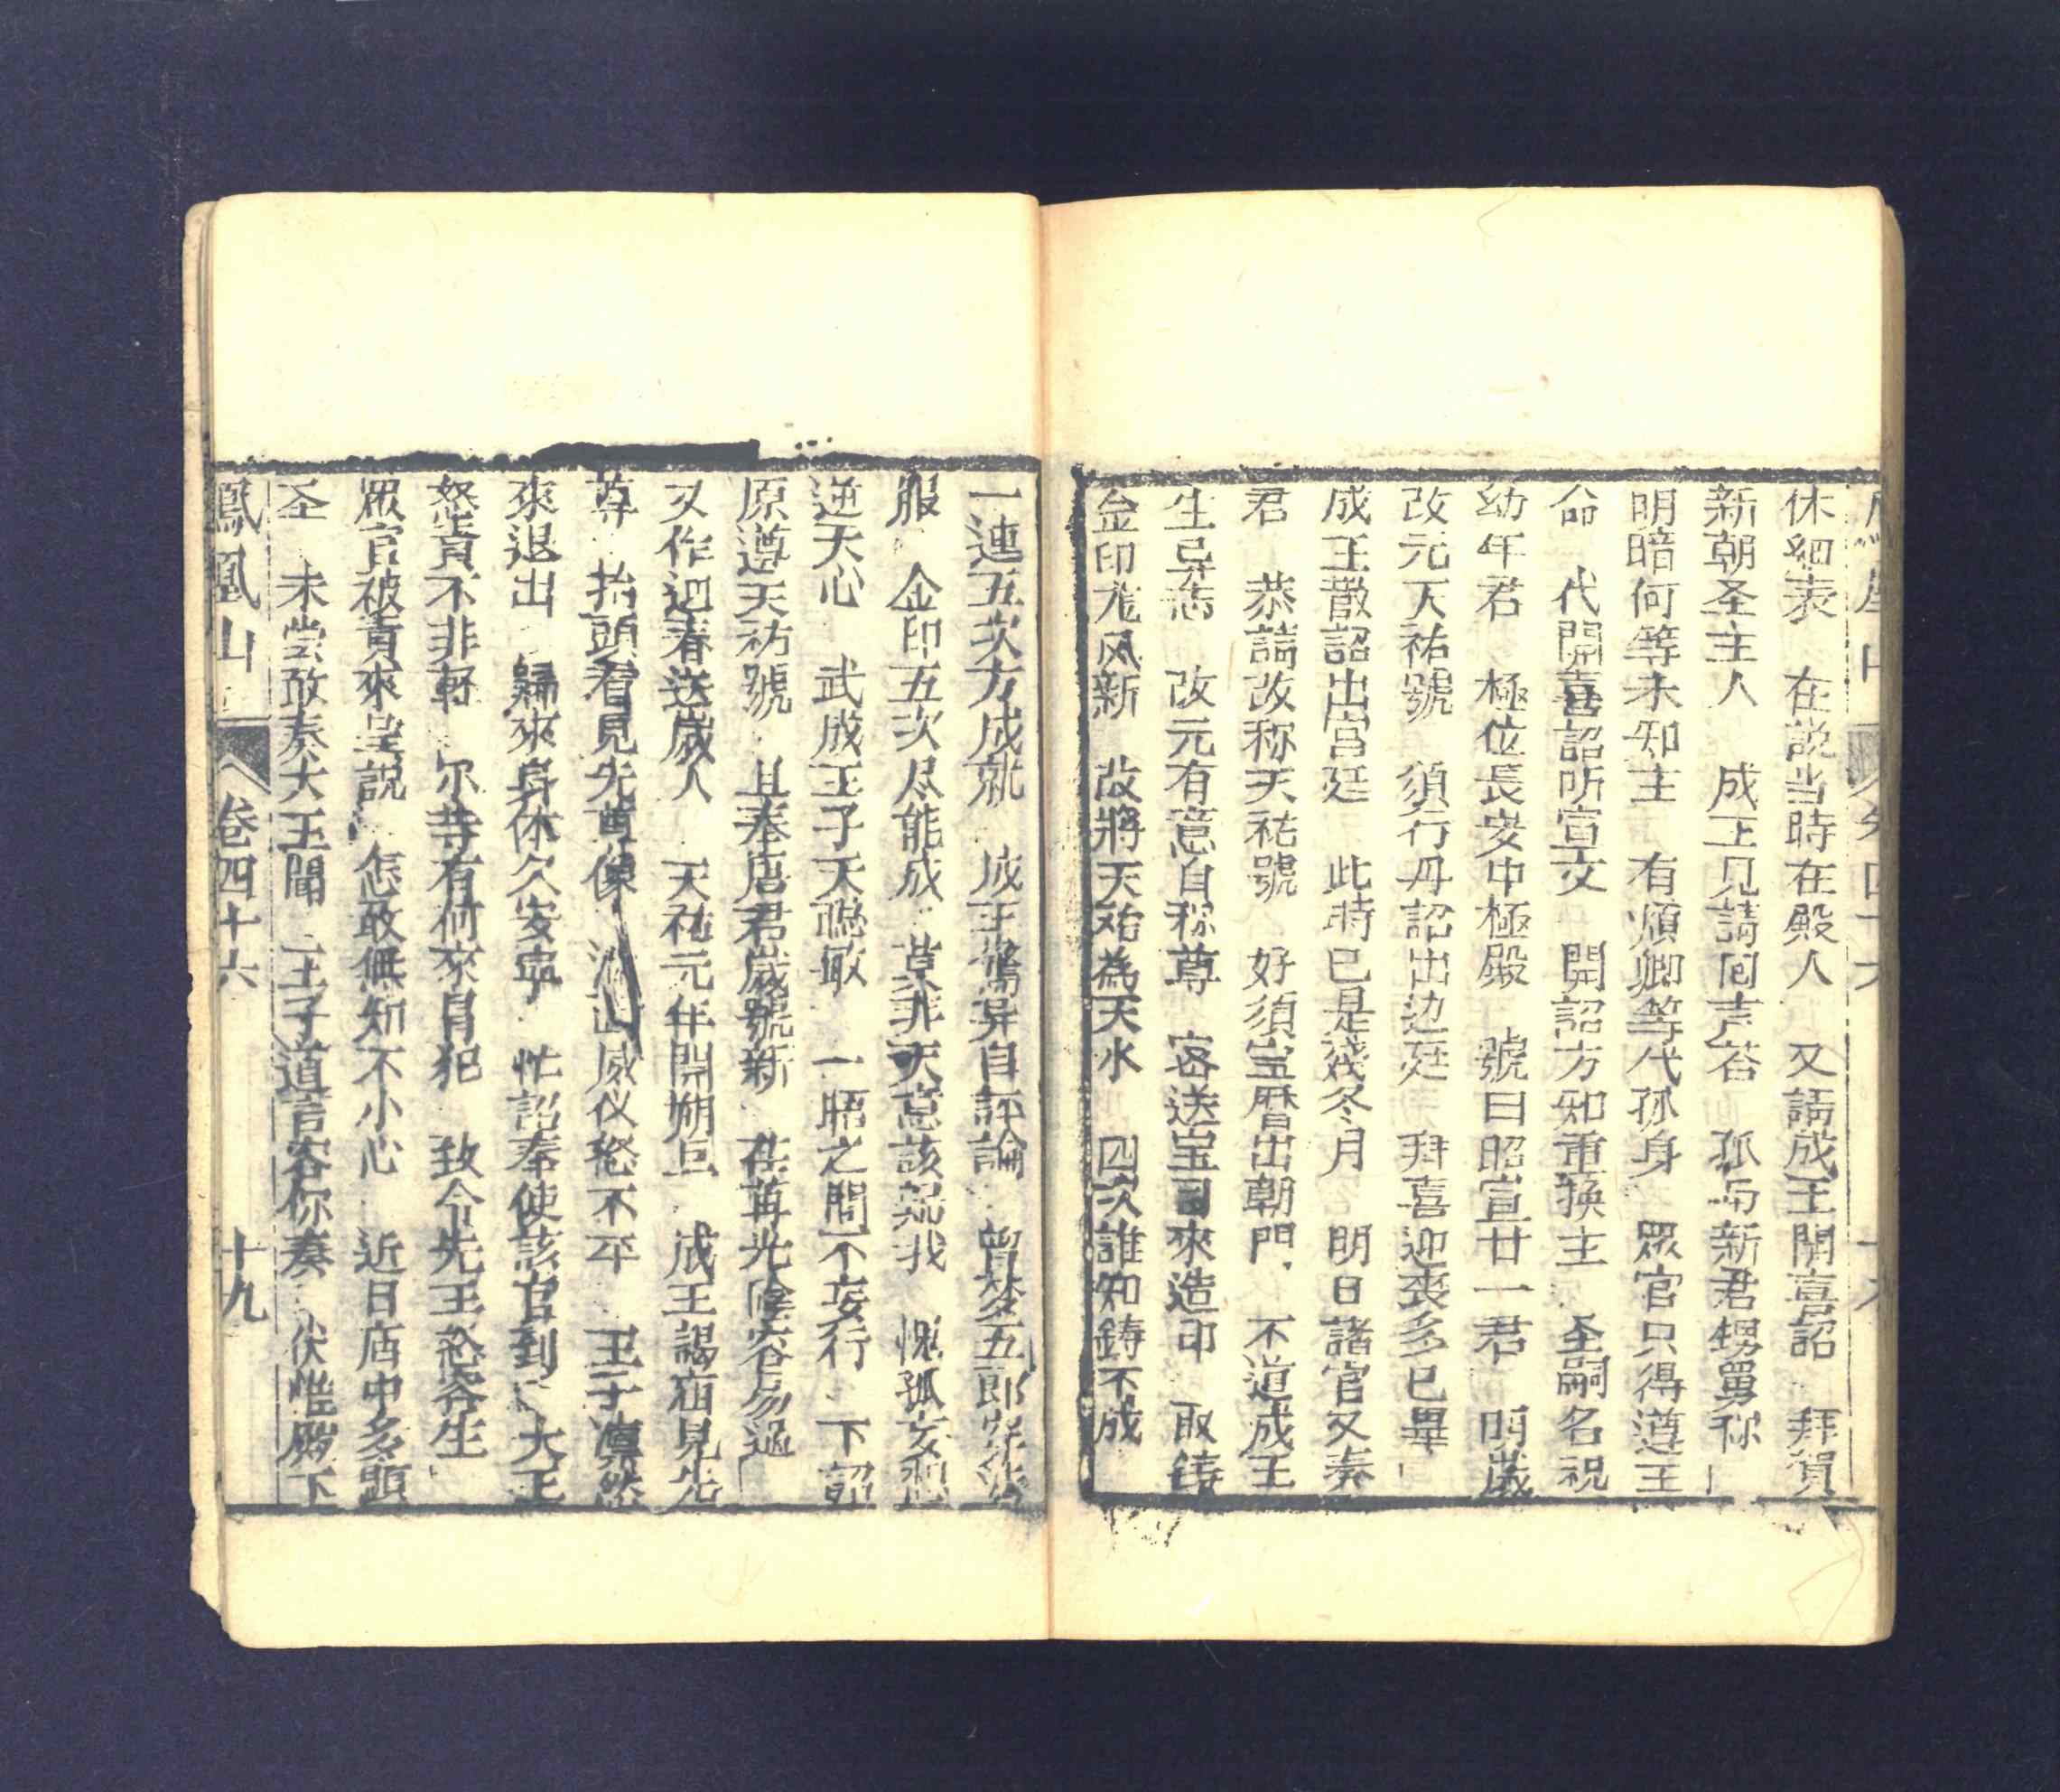 休細表　在說当時在殿人　又請成王開喜詔　拜賀
新朝圣主人　成王見請同声答　孤与新君甥舅称
明暗何等未知主　有煩卿等代孤身　眾官只得遵王
命　代開喜詔所宣文　開詔方知重換主　圣嗣名祝
幼年君　極位長安中極殿　號曰昭宣廿一君　明歲
改元天祐號　須行丹詔出边廷　拜喜迎喪多已畢
成王散詔出宮廷　此時已是殘冬月　明日諸官又奏
君　恭請改称天祐號　好須宝曆出朝門　不道成王
生异志　改元有意自称尊　密送宝司來造印　取鋳
金印龙风新　改將天始為天水　四次誰知鋳不成
一連五次方成就　成王驚异自評論　曾埜五郎
服　金印五次尽能成　莫非天意該　我　愧孤妄想
逆天心　武成王子天聪敏　一晤之間不妄行　下詔
原遵天祐號　且奉唐君歲號新　在苒光陰容易過
又作迎春送歲人　天祐元年開朔旦　成王謁庙見先
尊　抬頭看見先尊像　威仪怒不平　王子凛然
來退出　歸來身体欠安寧　忙詔奉使該官到　大王
怒責不非輕　尔等有何來冒犯　致令先王怒容生
眾官被責來呈說　怎敢無知不小心　近日庙中多顕
圣　未尝敢奏大王聞　王子道言容你奏　伏惟殿下
鳳凰山　卷四十六　十九